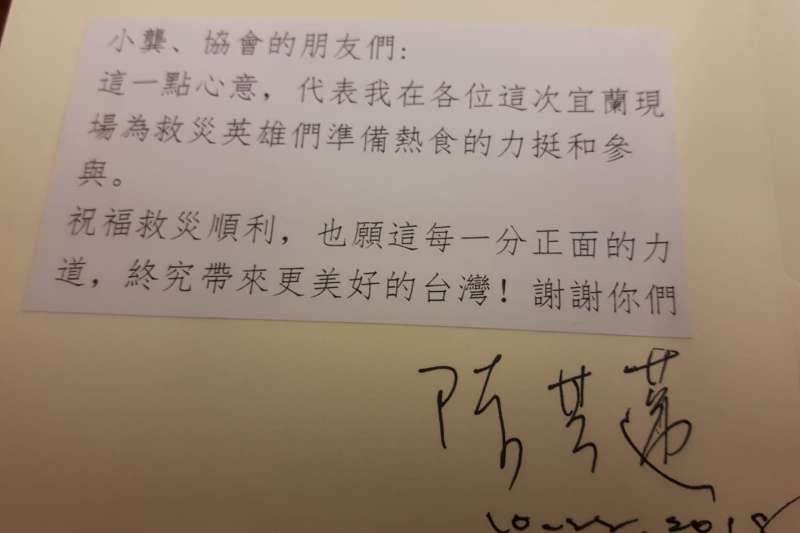 小龔、協會的朋友們:
這一點心意，代表我在各位這次宜蘭現
場為救災英雄們準備熱食的力挺和參
與。
祝福救災順利，也願這每一分正面的力
道，終究帶來更美好的台灣！謝謝你們
陳其邁
2018